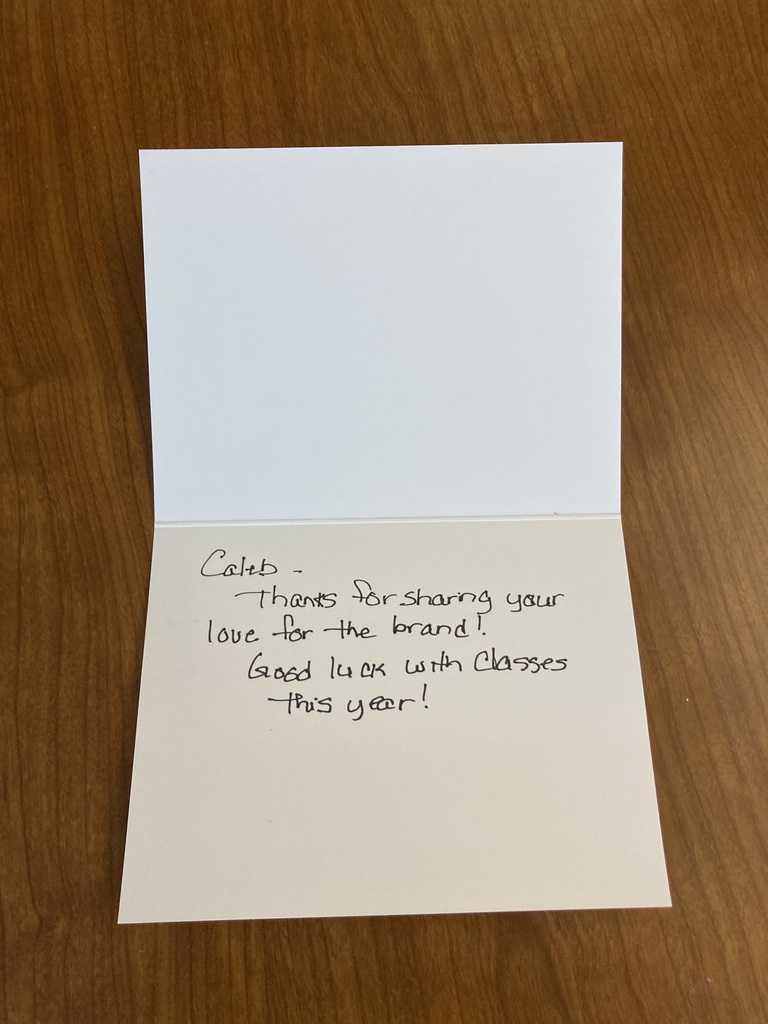 Caleb -
Thanks for sharing your
love for the brand!
Good luck with Classes
this year!